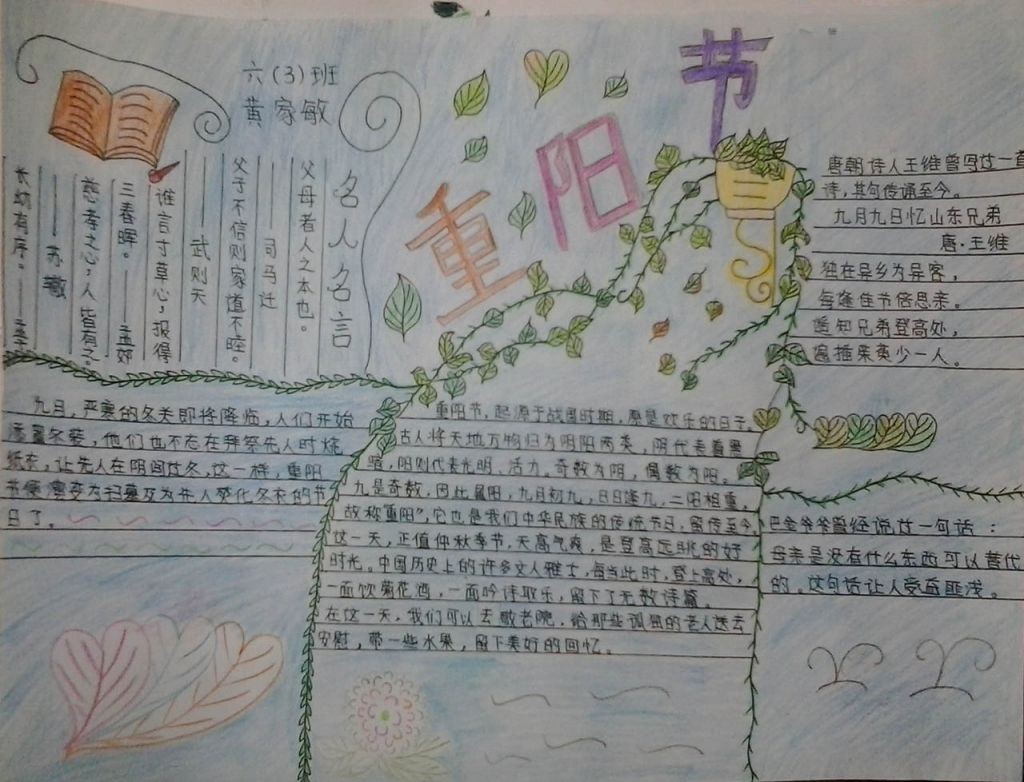 六(3)班
黄家敏
重阳节
名人名言
父母者人之本也。
——司马迁
父子不信则家道不睦。
——武则天
谁言寸草心，报得
三春晖。——孟郊
慈孝之心，人皆有之。
——苏辙
长幼有序。——孟
唐朝诗人王维曾写过一首
诗，其句传诵至今。
九月九日忆山东兄弟
唐·王维
独在异乡为异客，
每逢佳节倍思亲。
遥知兄弟登高处，
遍插茱萸少一人。
九月，严寒的冬天即将降临，人们开始
添置冬装，他们也不忘在拜祭先人时烧
纸衣，让先人在阴间过冬，这一样，重阳
节便演变为扫墓及为先人焚化冬衣的节
日了。
重阳节，起源于战国时期，原是欢乐的日子。
古人将天地万物归为阴阳两类，阴代表着黑
暗，阳则代表光明、活力。奇数为阳，偶数为阴。
九是奇数，因此属阳，九月初九，日月逢九，二阳相重，
故称重阳”，它也是我们中华民族的传统节日，留传至今，
这一天，正值仲秋季节，天高气爽，是登高远眺的好
时光。中国历史上的许多文人雅士，每当此时，登上高处，
一面饮菊花酒，一面吟诗取乐，留下了无数诗篇。
在这一天，我们可以去敬老院，给那些孤独的老人送去
安慰，带一些水果，留下美好的回忆。
巴金爷爷曾经说过一句话：
母亲是没有什么东西可以替代
的。这句话让人受益匪浅。